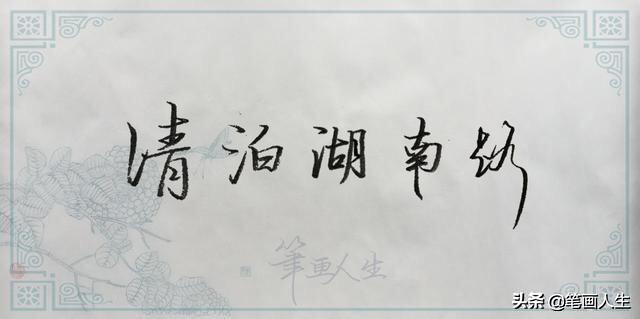 清泊湖南路
筆画人生
头条 @笔画人生